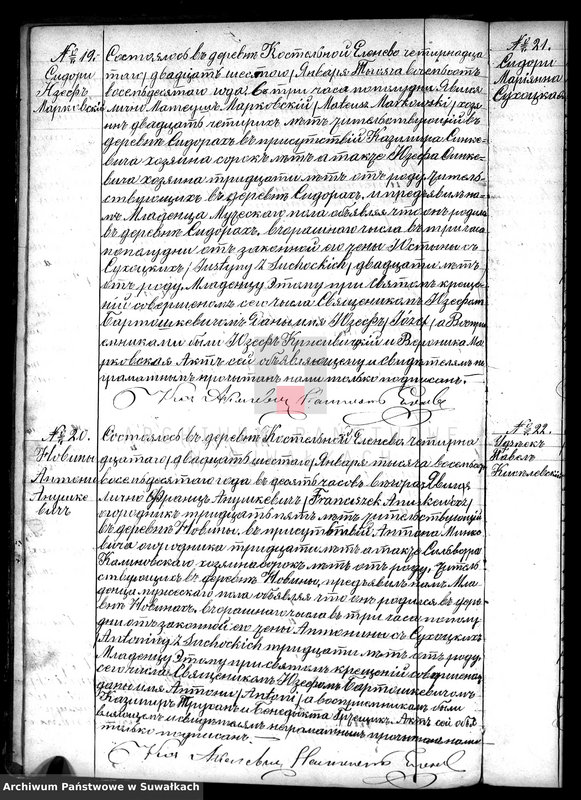 № 19.
Сидоры
Юзефъ
Марковскій
Состоялось въ деревнѣ Костельной Еленево четырнадца
таго/двадцать шестаго/Января Тысяча восемьсотъ
восемьдесятаго года въ три часа пополудни. Явился
лично Матеушъ Марковскій /Mateusz Markowski/ хозя
инъ двадцать четырехъ лѣтъ жительствующій въ
деревнѣ Сидорахъ въ присутствіи Казимира Синке
вича хозяина сорокъ лѣтъ а также Юзефа Синке
вича хозяина тридцати лѣтъ отъ роду, житель
ствующихъ въ деревнѣ Сидорахъ, и предъявилъ на
мъ Младенца Мужескаго пола объявляя что онъ родился
въ деревнѣ Сидорахъ вчорашнаго числа въ три часа
пополудни отъ законной его жены Юстыны съ
Сухоцкихъ /Justyny z Suchockich/ двадцати лѣтъ
отъ роду. Младенцу Этому при святомъ креще
ній совершеномъ сего числа Священикомъ Юзефомъ
Бартошкевичемъ Дано имя Юзефъ /Józef/ а Воспрі
емниками были Юзефъ и Вероника Ма
рковская Актъ сей объявляющему и свидѣтелямъ не
грамотнымъ прочитанъ нами только подписанъ.
№ 20.
Новины
Антоній
Анушке
вичъ
Состоялось въ деревнѣ Костельной Еленево, четырна
дцатаго/двадцать шестаго/Января тысяча восемьсотъ
восемьдесятаго года въ десять часовъ вечера. Явился
лично Францъ Анушкевичъ /Franciszek Anuszkewicz/
огородникъ тридцать пять лѣтъ жительствующій
въ деревнѣ Новины, въ присутствіи Антона Минке
вича огородника тридцати лѣтъ а также Сильвестра
Калиновскаго хозяина сорокъ лѣтъ отъ роду, житель
ствующихъ въ деревнѣ Новины, предъявилъ намъ Мла
денца мужескаго пола объявляя что онъ родился въ дерев
нѣ Новинахъ, вчорашнаго числа въ три часа пополу
дни отъ законной его жены Антонины съ Сухоцкихъ
Antoniny z Suchockich тридцати лѣтъ отъ роду.
Младенцу Этому при святомъ крещеній совершеномъ
сего числа Священикомъ Юзефомъ Бартошкевичемъ
дано имя Антоній /Antoni/ а воспріемниками были
Казимиръ и Бенедыкта Актъ сей объя
вляющему и свидѣтелямъ неграмотнымъ прочитанъ нами
только подписанъ.
№ 21.
Сидоры
Маріянна
Сухоцкая
№ 22.
Павелъ
Киселевскій
ARCHIWUM PAŃSTWOWE
W SUWAŁKACH
Archiwum Państwowe w Suwałkach